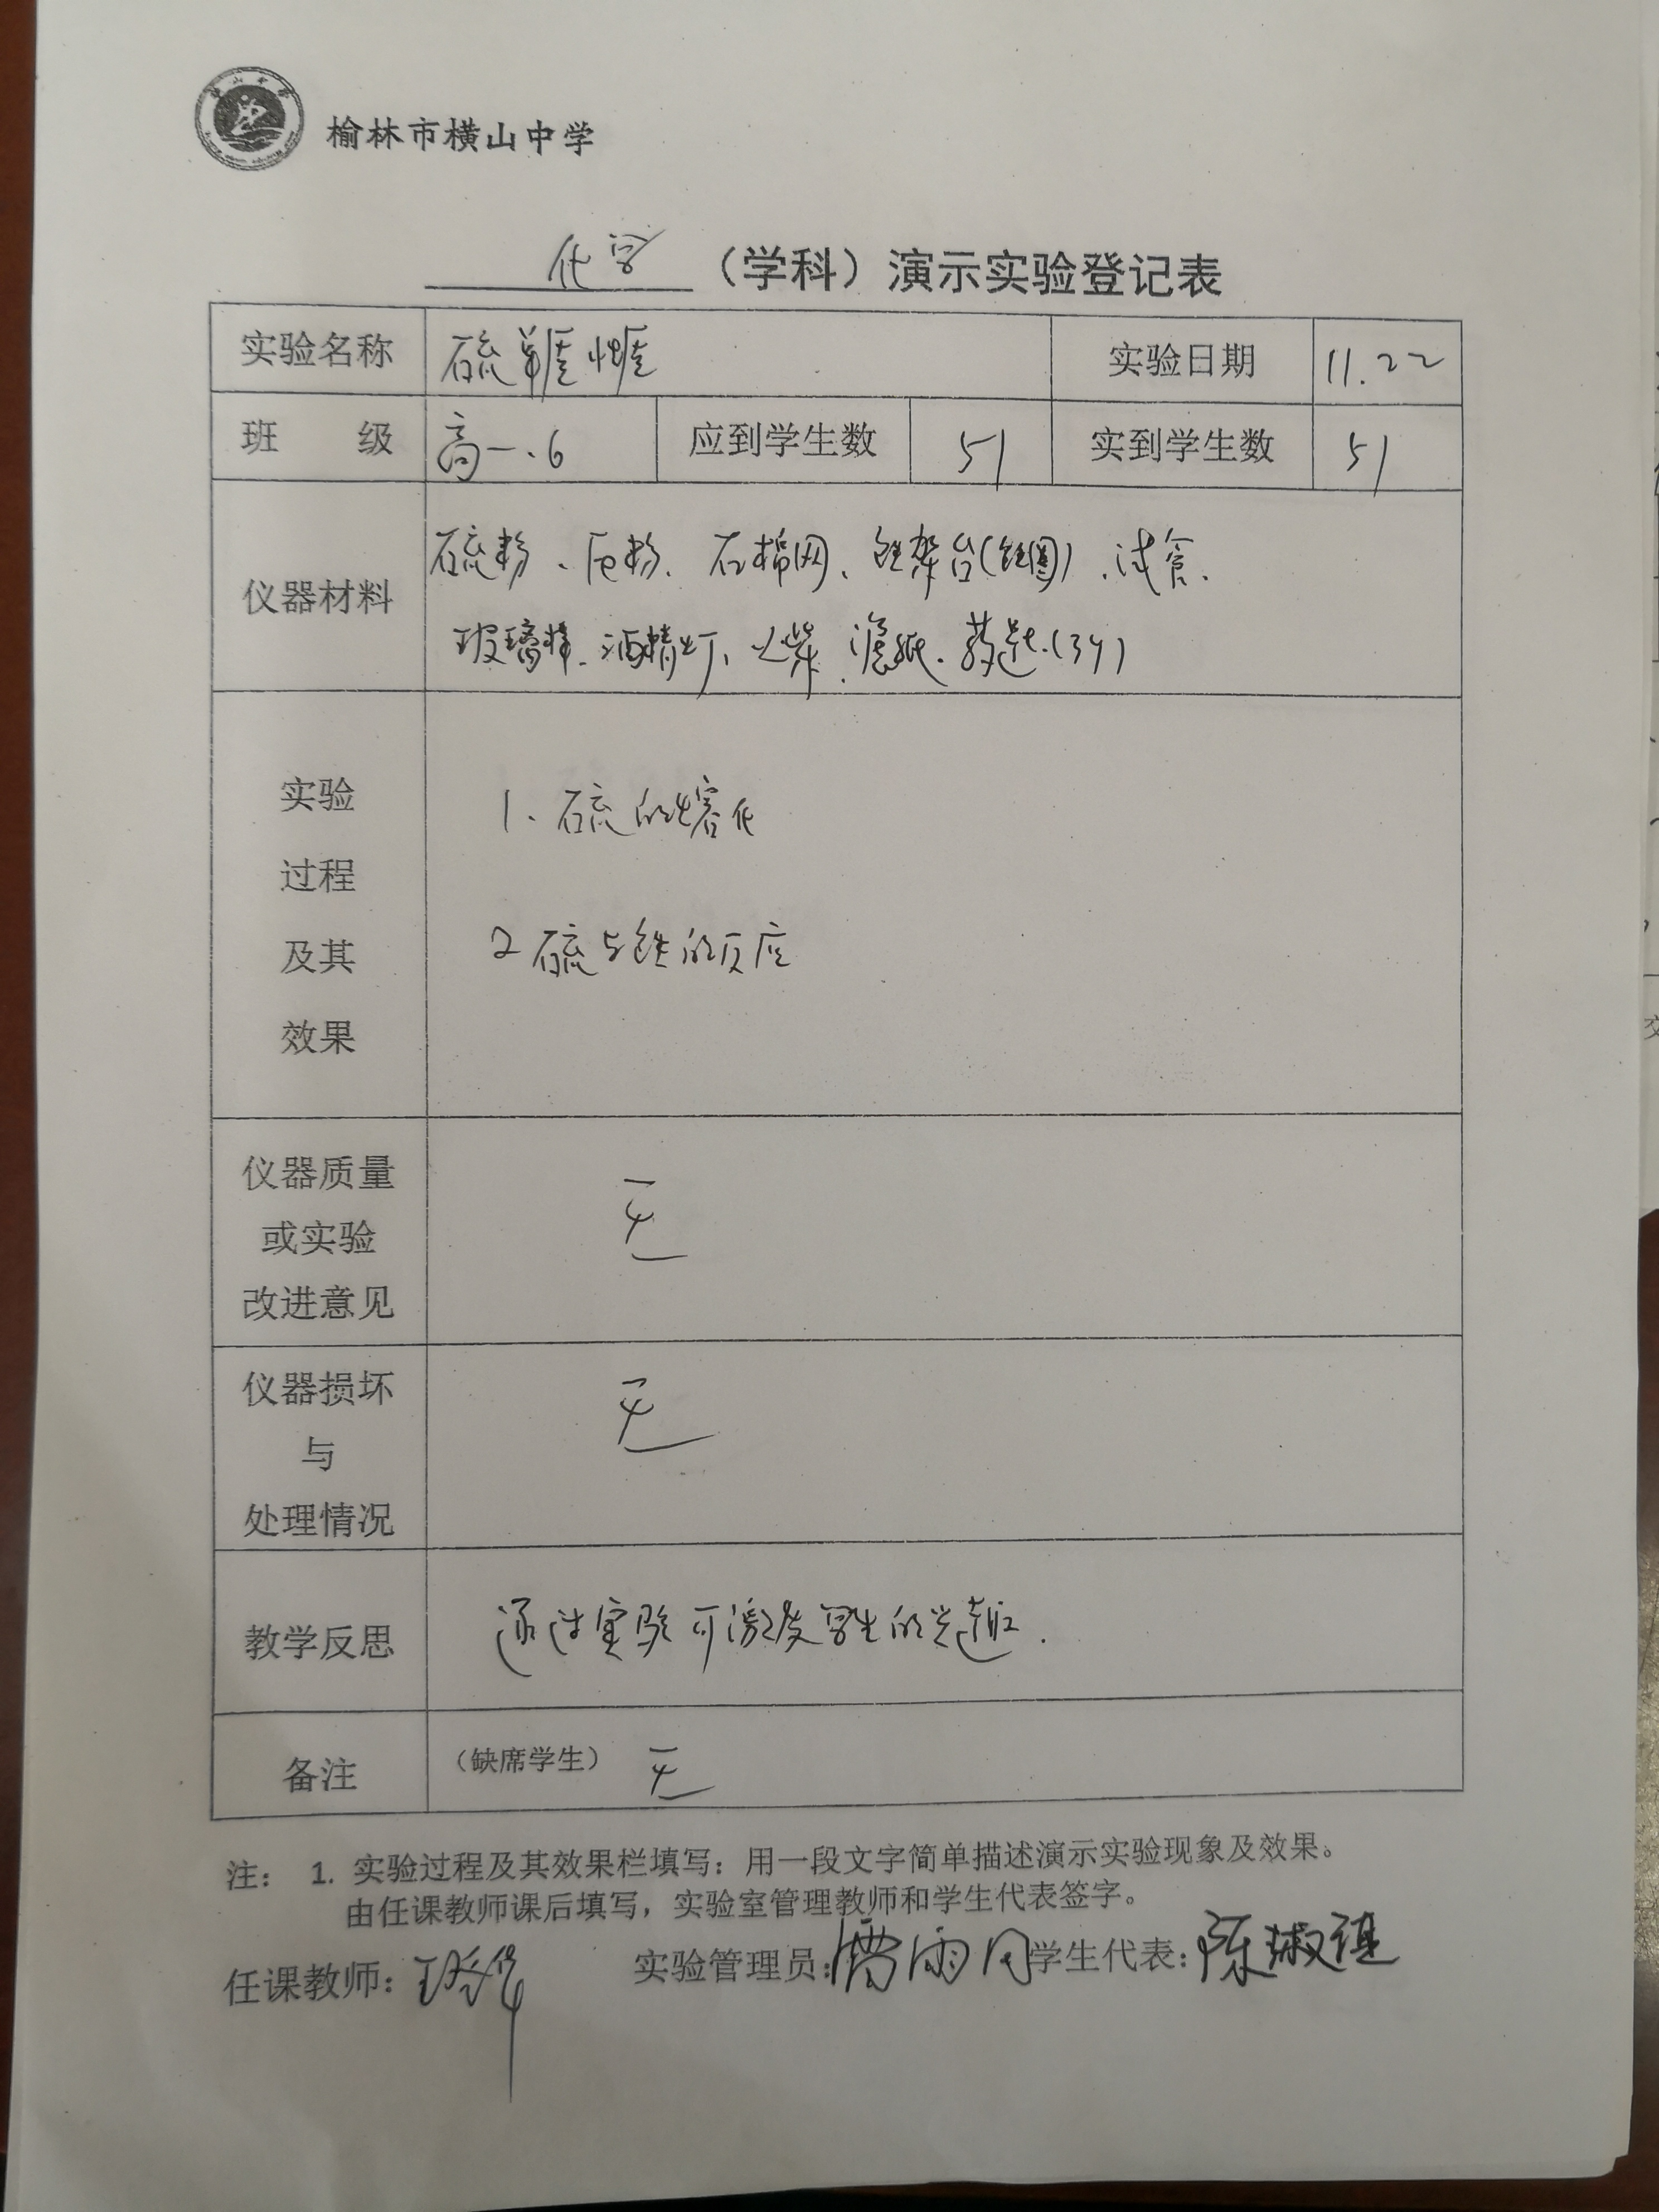 榆林市横山中学
化学（学科）演示实验登记表
实验名称 硫单质性质 实验日期 11.22
班 级 高一.6 应到学生数 51 实到学生数 51
仪器材料
硫粉、Fe粉、石棉网、铁架台(铁圈)、试管、
玻璃棒、酒精灯、火柴、滤纸、药匙(3个)
实验
过程
及其
效果
1、硫的熔化
2 硫与铁的反应
仪器质量
或实验
改进意见
无
仪器损坏
与
处理情况
无
教学反思 通过实验可激发学生的兴趣.
备注 （缺席学生） 无
注： 1. 实验过程及其效果栏填写：用一段文字简单描述演示实验现象及效果。
由任课教师课后填写，实验室管理教师和学生代表签字。
任课教师： 实验管理员：曹雨 学生代表：陈淑